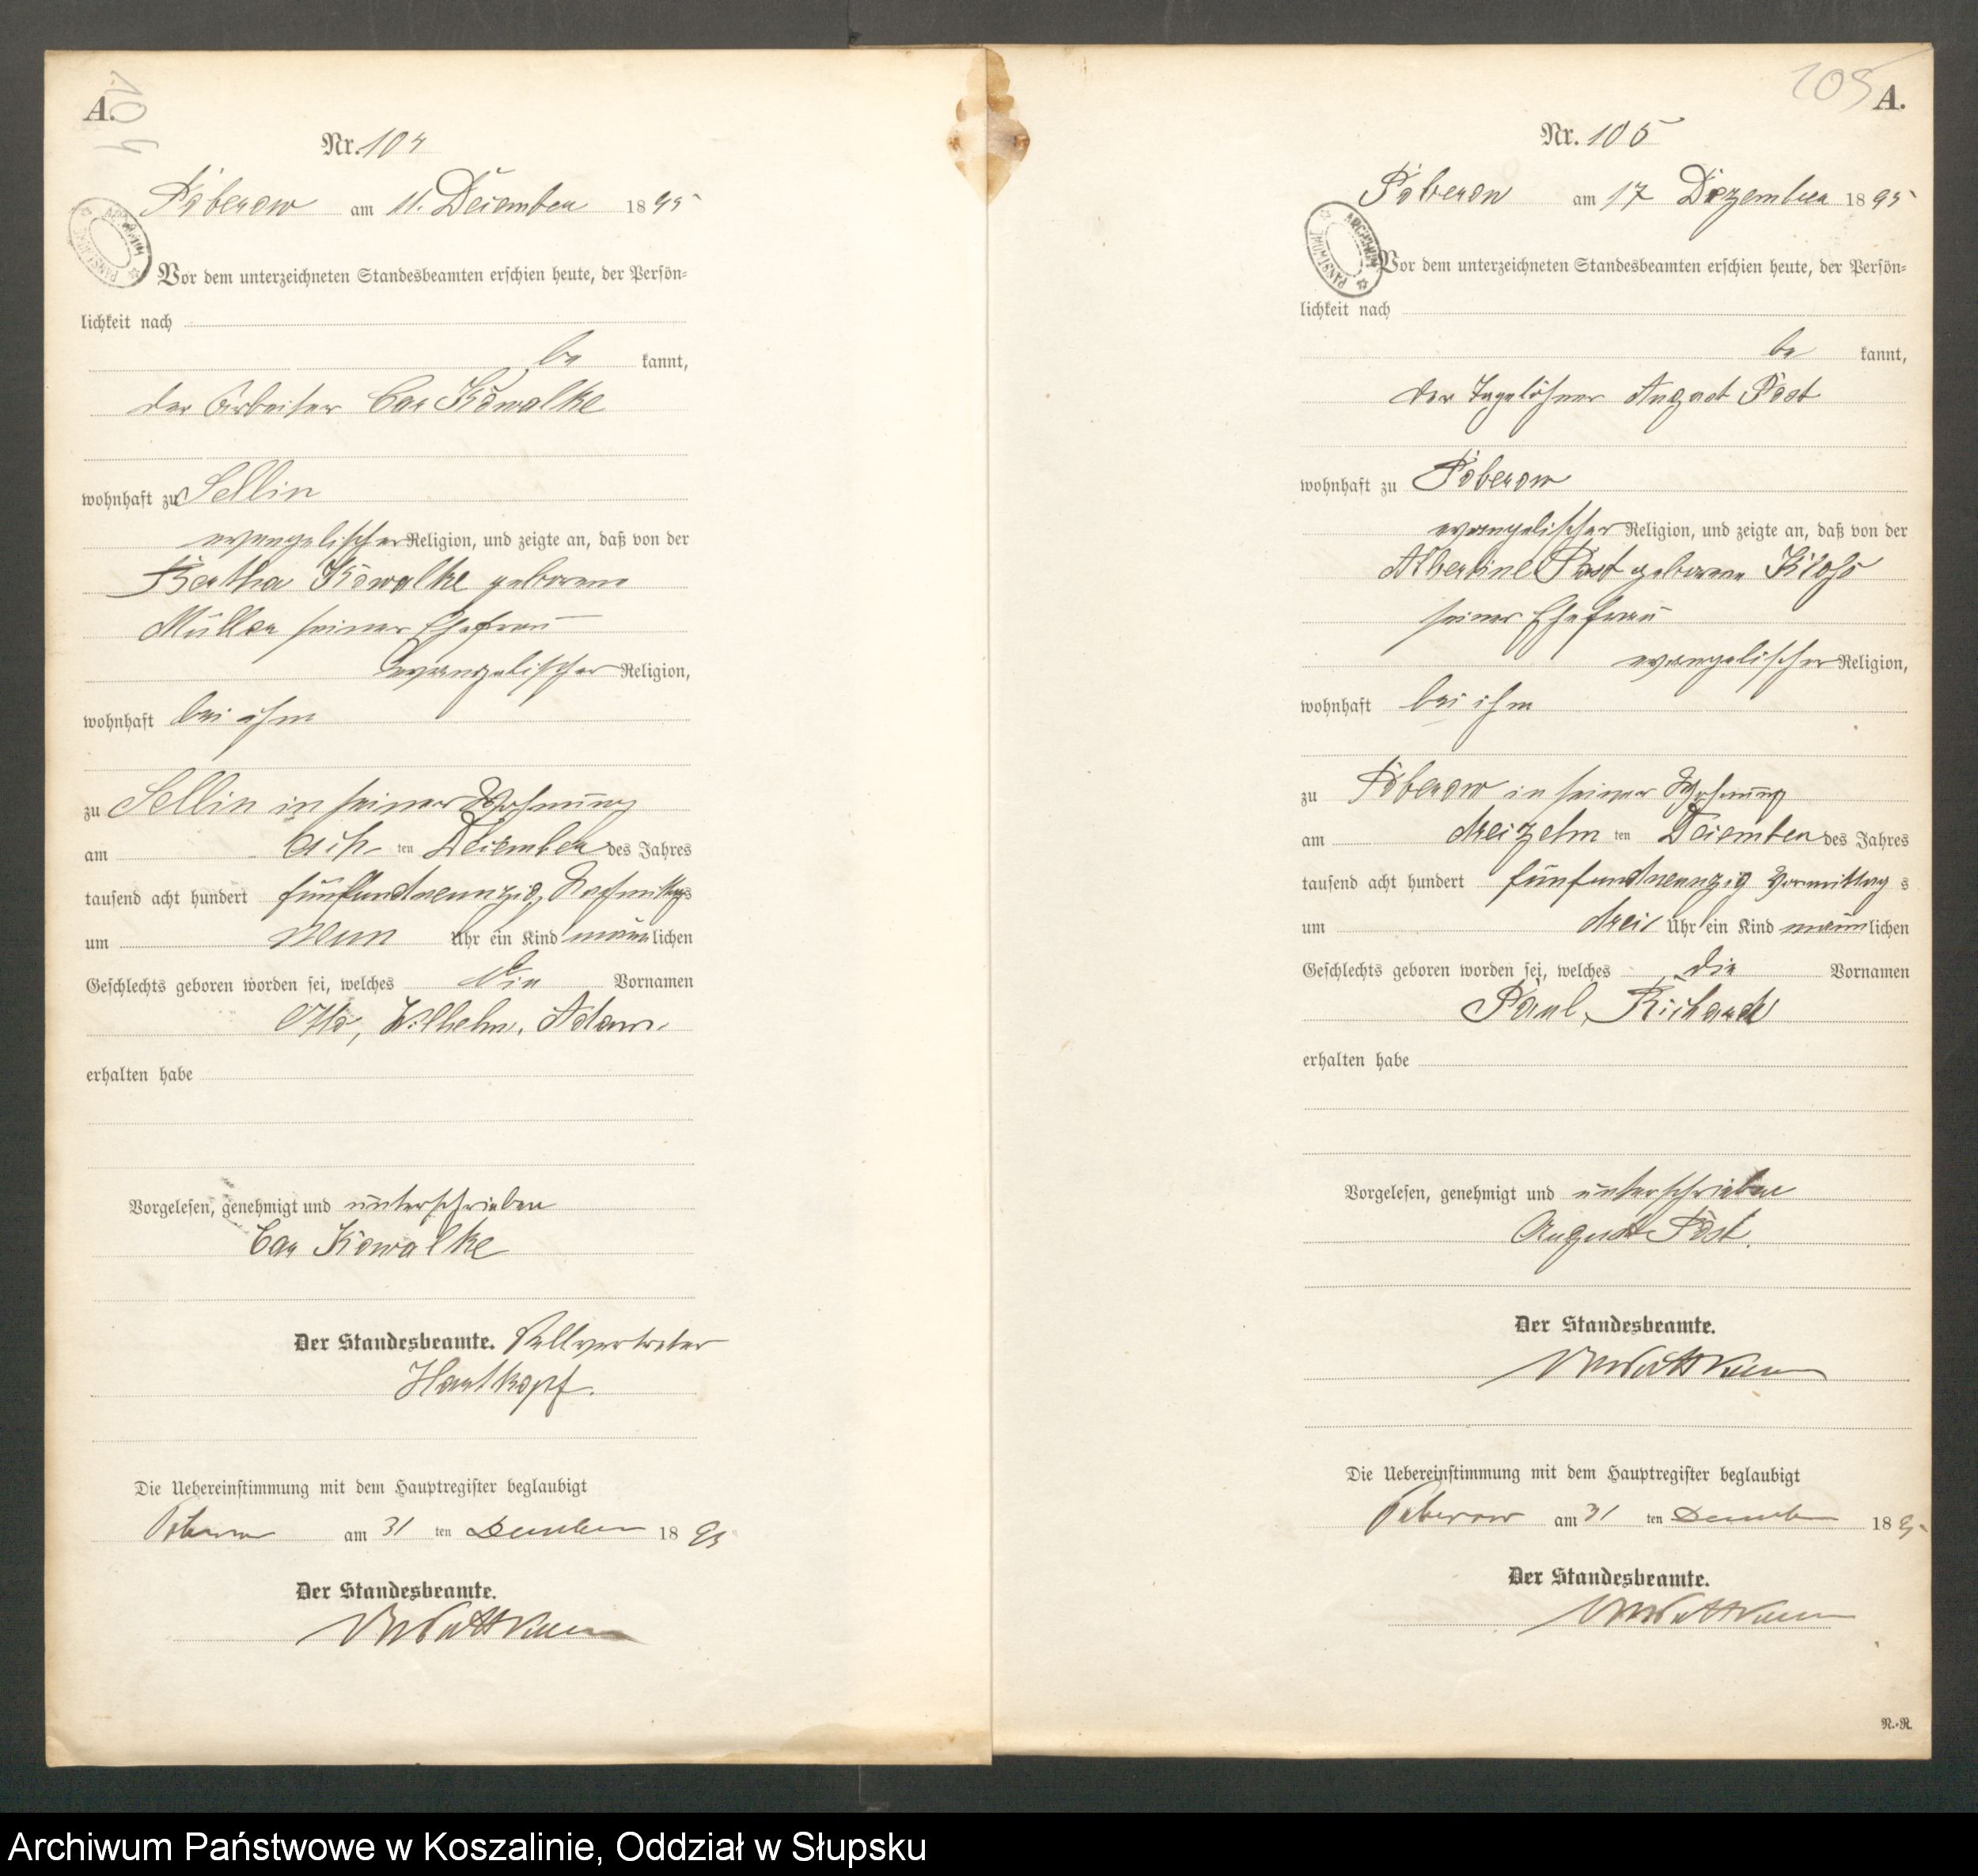 A.
104
Nr. 104
Poberow am 11. Dezember 1895
Vor dem unterzeichneten Standesbeamten erschien heute, der Persön-
lichkeit nach
be kannt,
der Arbeiter Carl Kowalke
wohnhaft zu Sellin
evangelischer Religion, und zeigte an, daß von der
Bertha Kowalke geborene
Müller seiner Ehefrau
evangelischer Religion,
wohnhaft bei ihm
zu Sellin in seiner Wohnung
am ten Dezember des Jahres
tausend acht hundert fünfundneunzig Nachmittags
um neun Uhr ein Kind männlichen
Geschlechts geboren worden sei, welches die Vornamen
Otto, Wilhelm, Adam.
erhalten habe
Vorgelesen, genehmigt und unterschrieben
Carl Kowalke
Der Standesbeamte. Stellvertreter
Hartkopf.
Die Uebereinstimmung mit dem Hauptregister beglaubigt
Poberow am 31 ten Dezember 1895
Der Standesbeamte.
105
A.
Nr. 105
Poberow am 17 Dezember 1895
ARCHIWUM PAŃSTWOWE
Vor dem unterzeichneten Standesbeamten erschien heute, der Persön-
lichkeit nach
be kannt,
der Tagelöhner August Post
wohnhaft zu Poberow
evangelischer Religion, und zeigte an, daß von der
Albertine Post geborene
seiner Ehefrau
evangelischer Religion,
wohnhaft bei ihm
zu Poberow in seiner Wohnung
am dreizehn ten Dezember des Jahres
tausend acht hundert fünfundneunzig Vormittag s
um drei Uhr ein Kind männlichen
Geschlechts geboren worden sei, welches die Vornamen
Paul, Richard
erhalten habe
Vorgelesen, genehmigt und unterschrieben
August Post.
Der Standesbeamte.
Die Uebereinstimmung mit dem Hauptregister beglaubigt
Poberow am 31 ten Dezember 1895
Der Standesbeamte.
N.-R.
Archiwum Państwowe w Koszalinie, Oddział w Słupsku